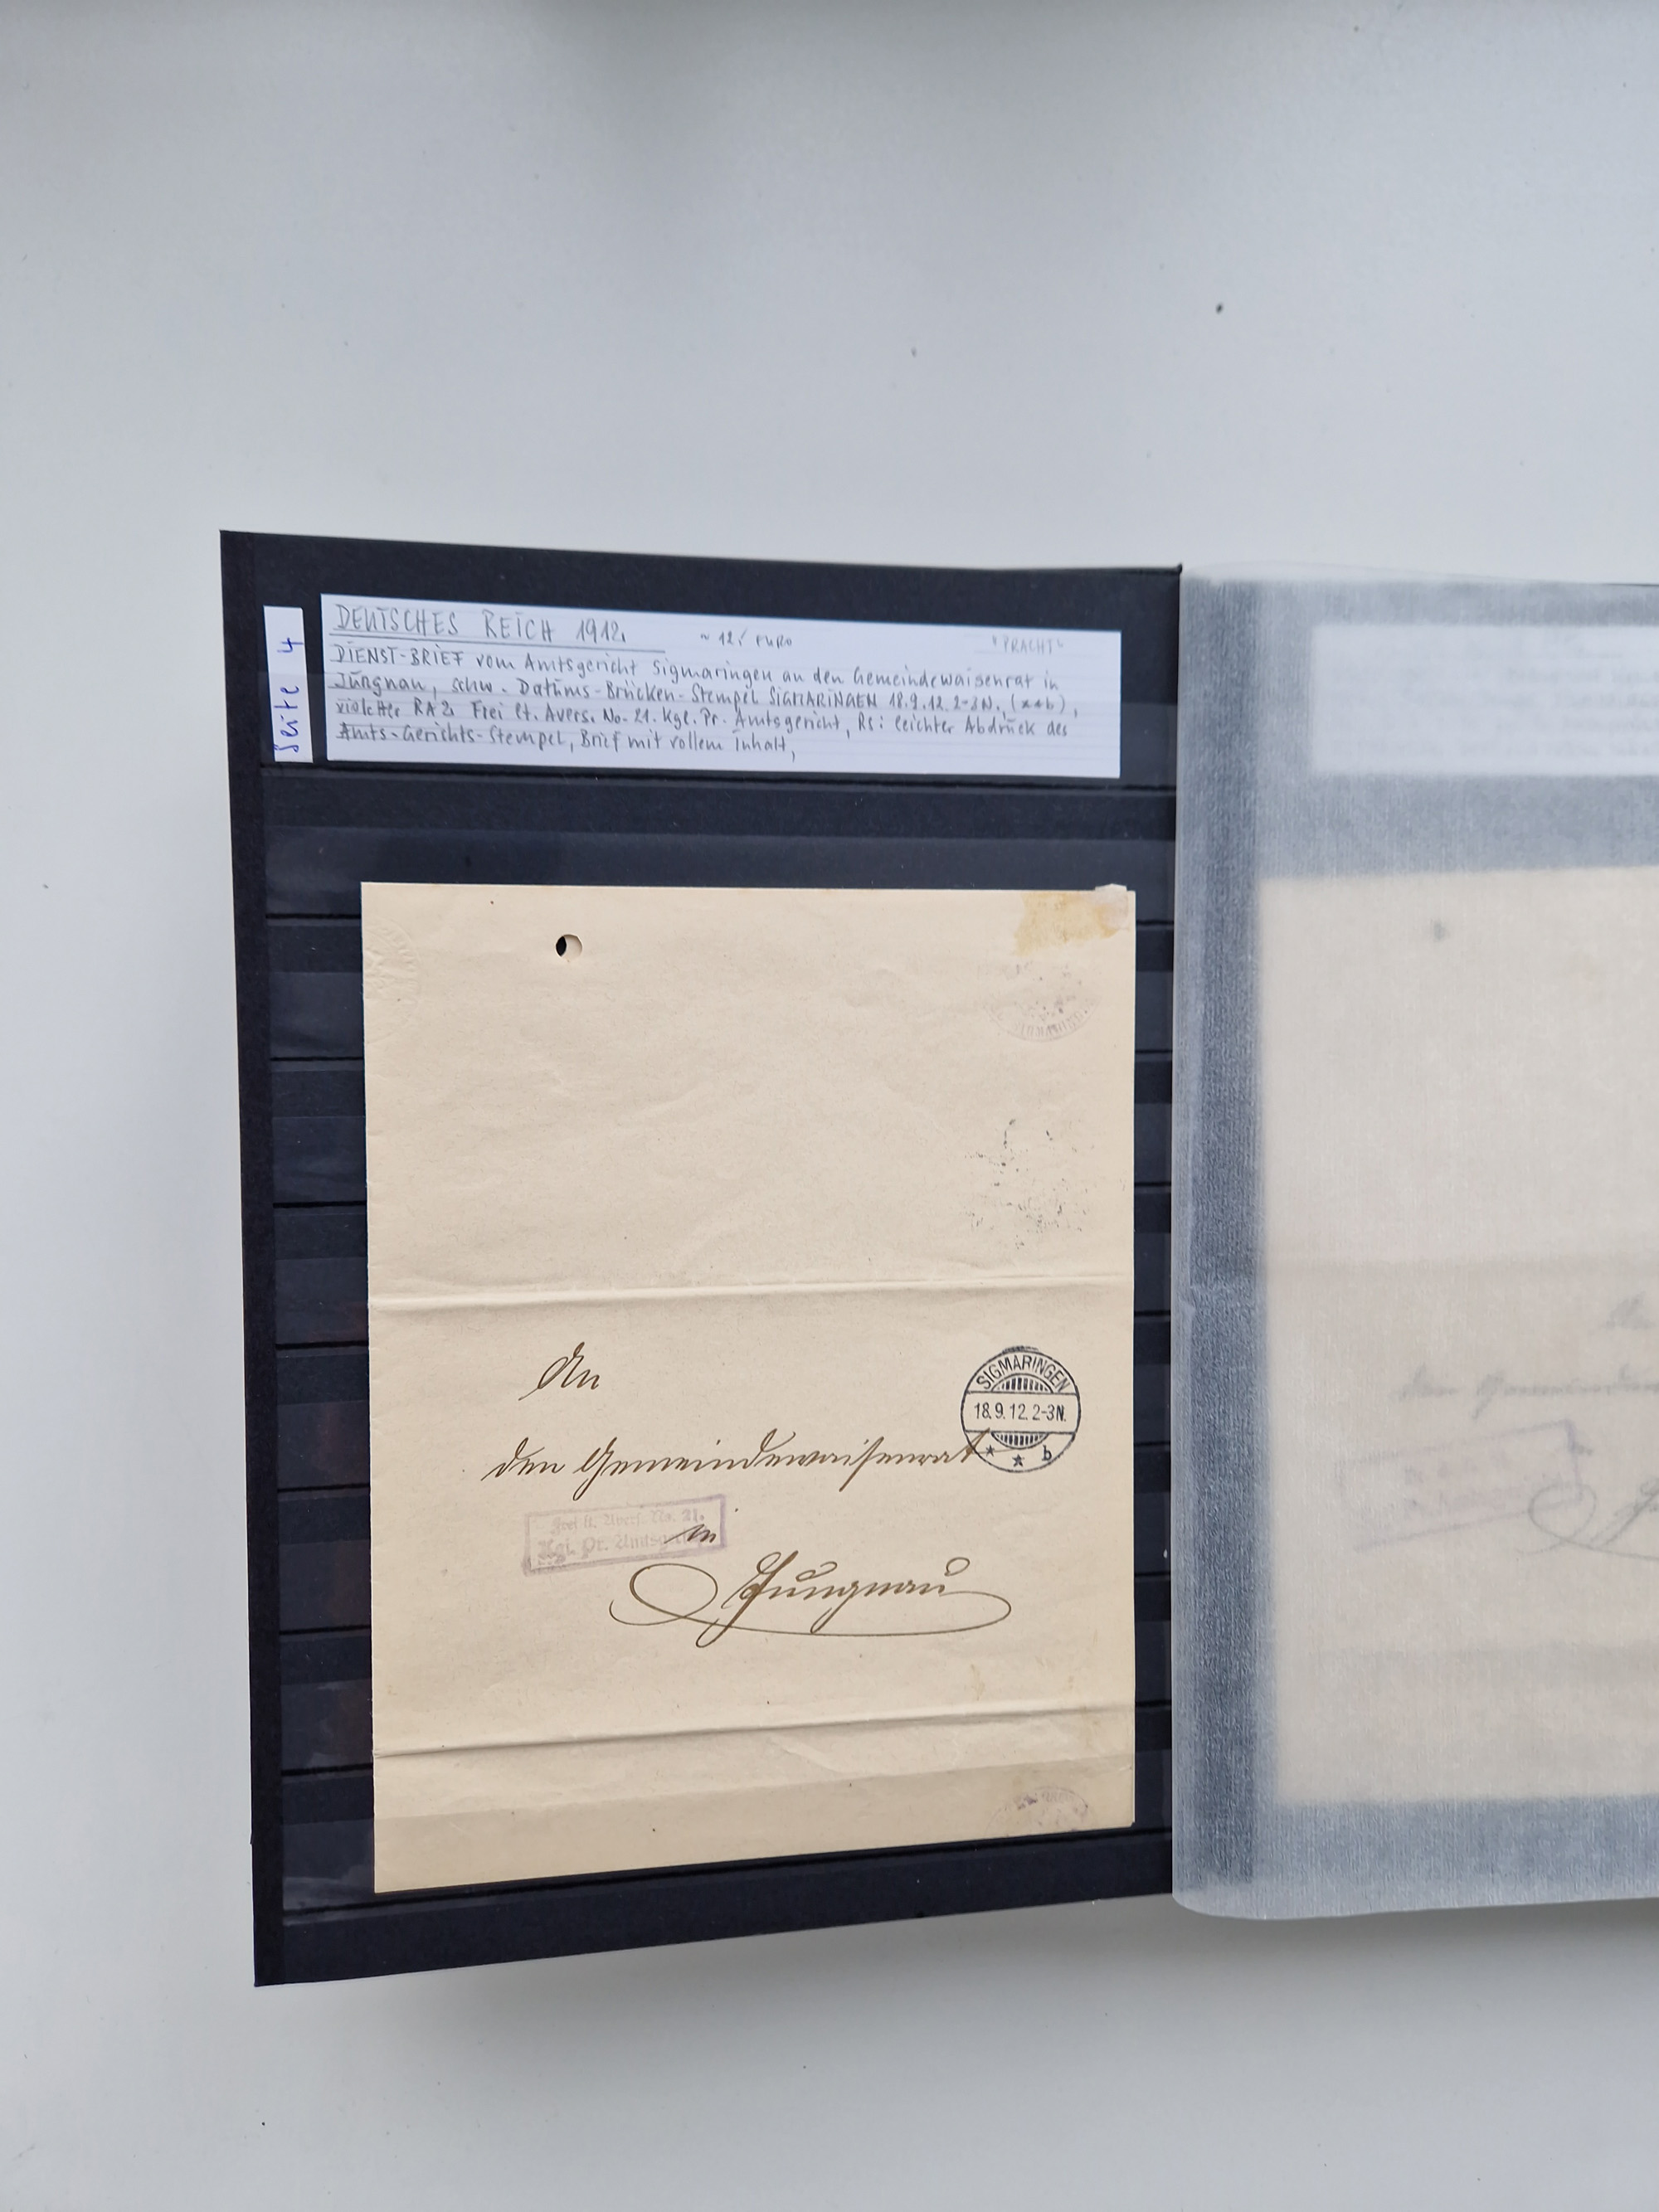 Seite 4
DEUTSCHES REICH 1912. ~ 12,- EURO "PRACHT"
DIENST-BRIEF vom Amtsgericht Sigmaringen an den Gemeindewaisenrat in
Jungnau, schw. Datums-Brücken-Stempel SIGMARINGEN 18.9.12.2-3N. (**b),
violetter RA2 Frei lt. Avers. No. 21. Kgl. Pr. Amtsgericht, RS: leichter Abdruck des
Amts-Gerichts-Stempel, Brief mit vollem Inhalt,
An
SIGMARINGEN
18.9.12.2-3N.
* * b
den Gemeindewaisenrat
Frei lt. Avers. No. 21.
Kgl. Pr.
in
Jungnau